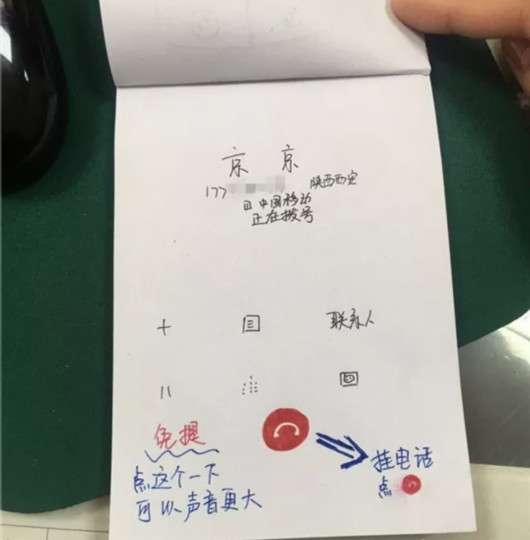 京 京
177 陕西西安
中国移动
正在拨号
+ 联系人
免提
点这个一下
可以声音更大
挂电话
点